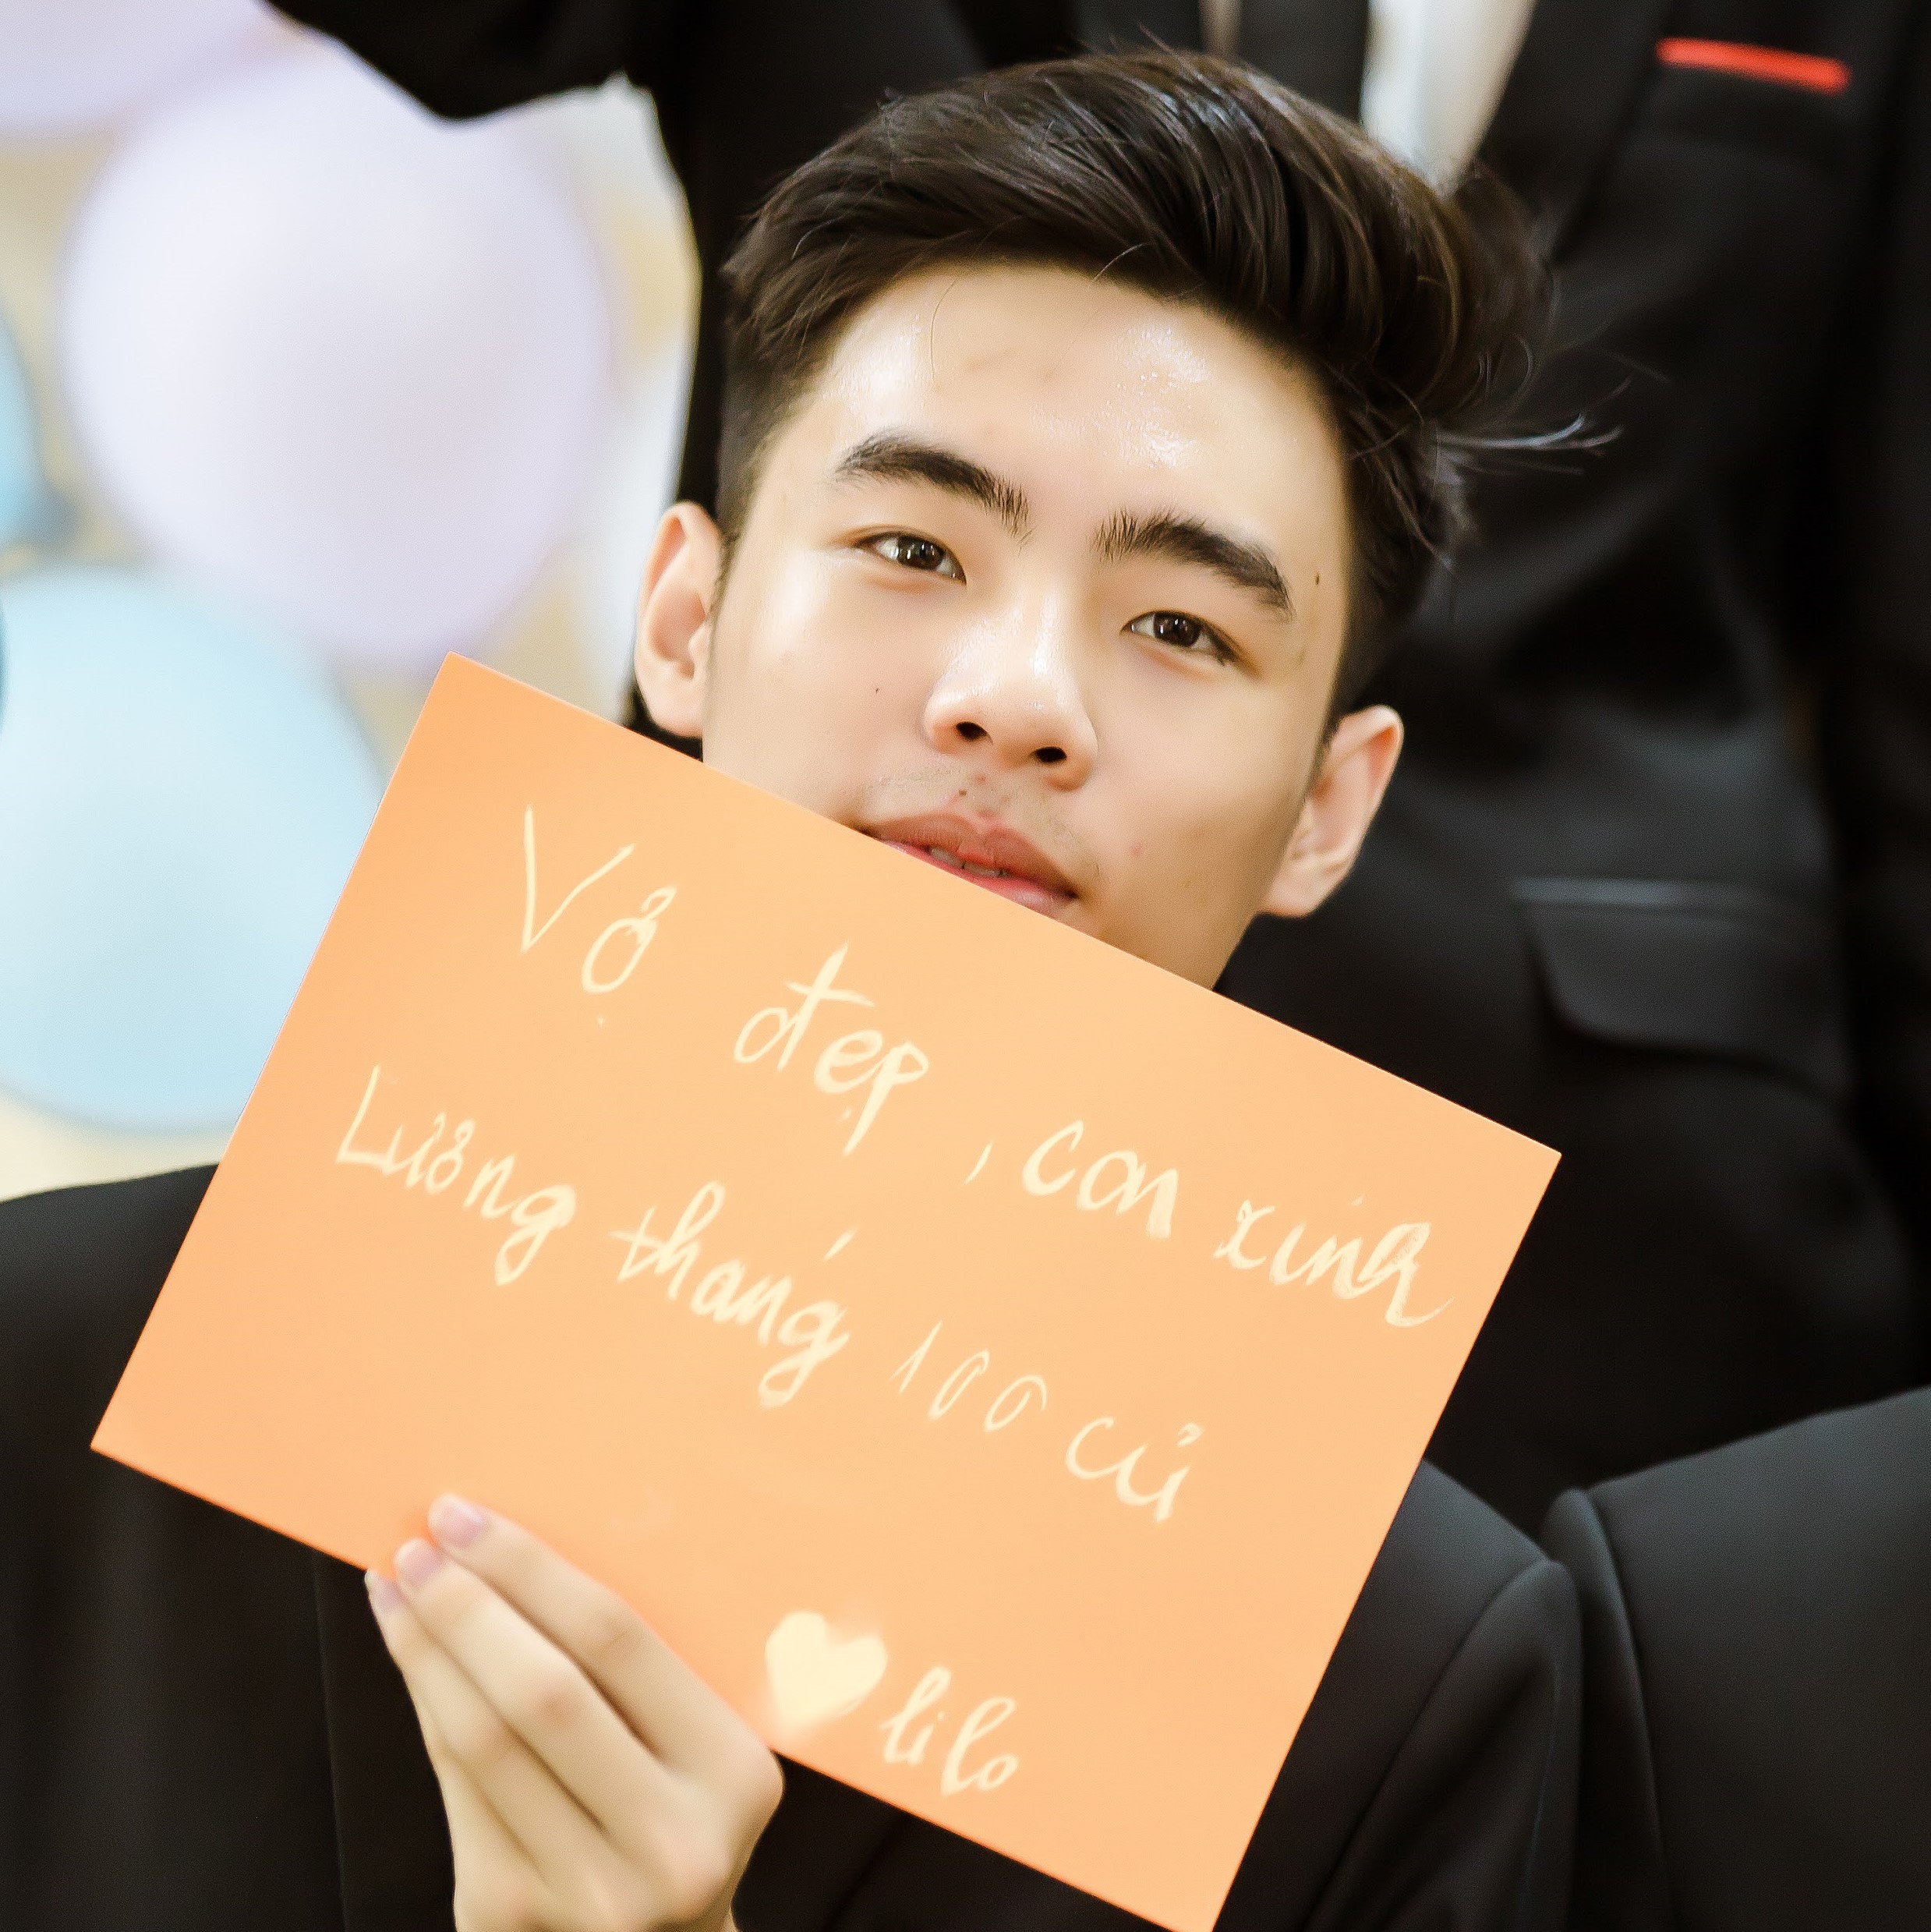 Vợ đẹp, con xinh
Lương tháng 100 củ
lilo